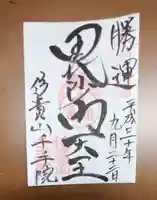 勝運
平成三十年
九月二十三日
毘沙門天王
信貴山千手院